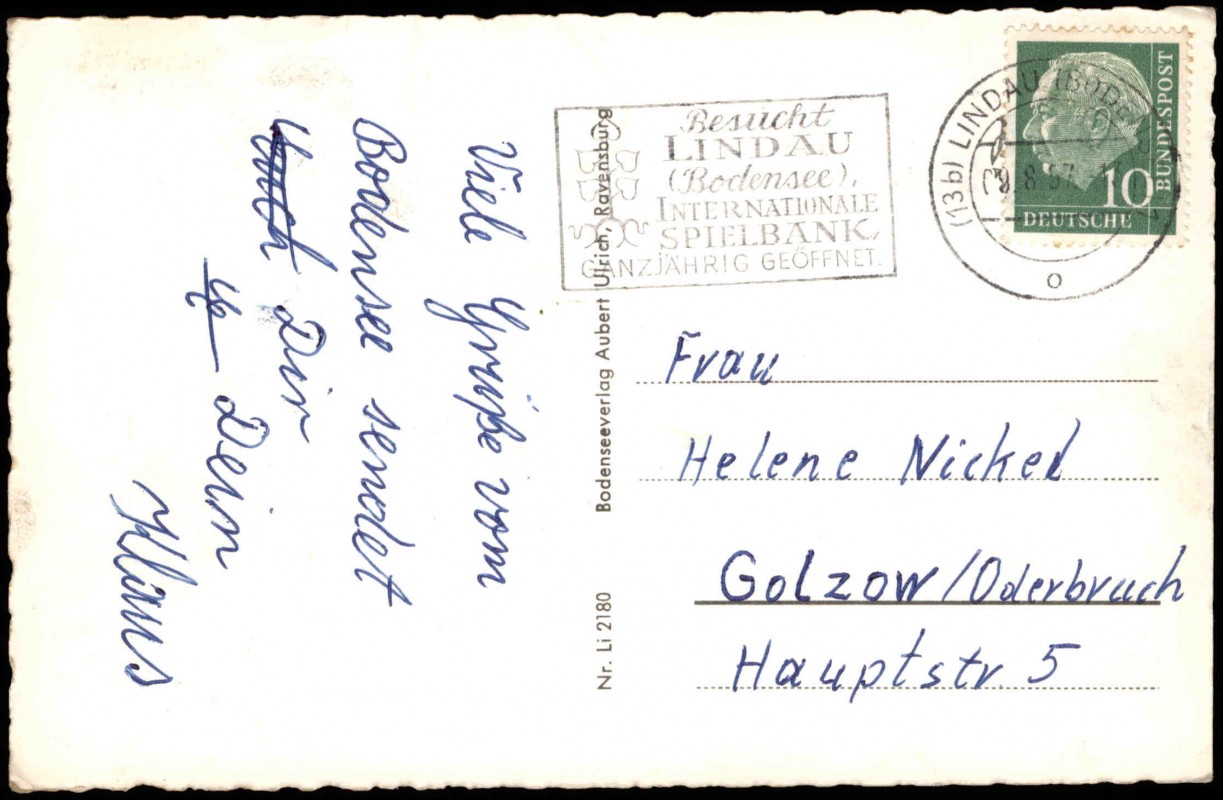 Viele Grüße vom
Bodensee sendet
Dir
Dein
Klaus
Bodenseeverlag Aubert Ulrich, Ravensburg
Nr. Li 2180
Besucht
LINDAU
(Bodensee),
INTERNATIONALE
SPIELBANK,
GANZJÄHRIG GEÖFFNET.
(13b) LINDAU (BOD
8.57
o
BUNDESPOST
10
DEUTSCHE
Frau
Helene Nickel
Golzow/Oderbruch
Hauptstr. 5